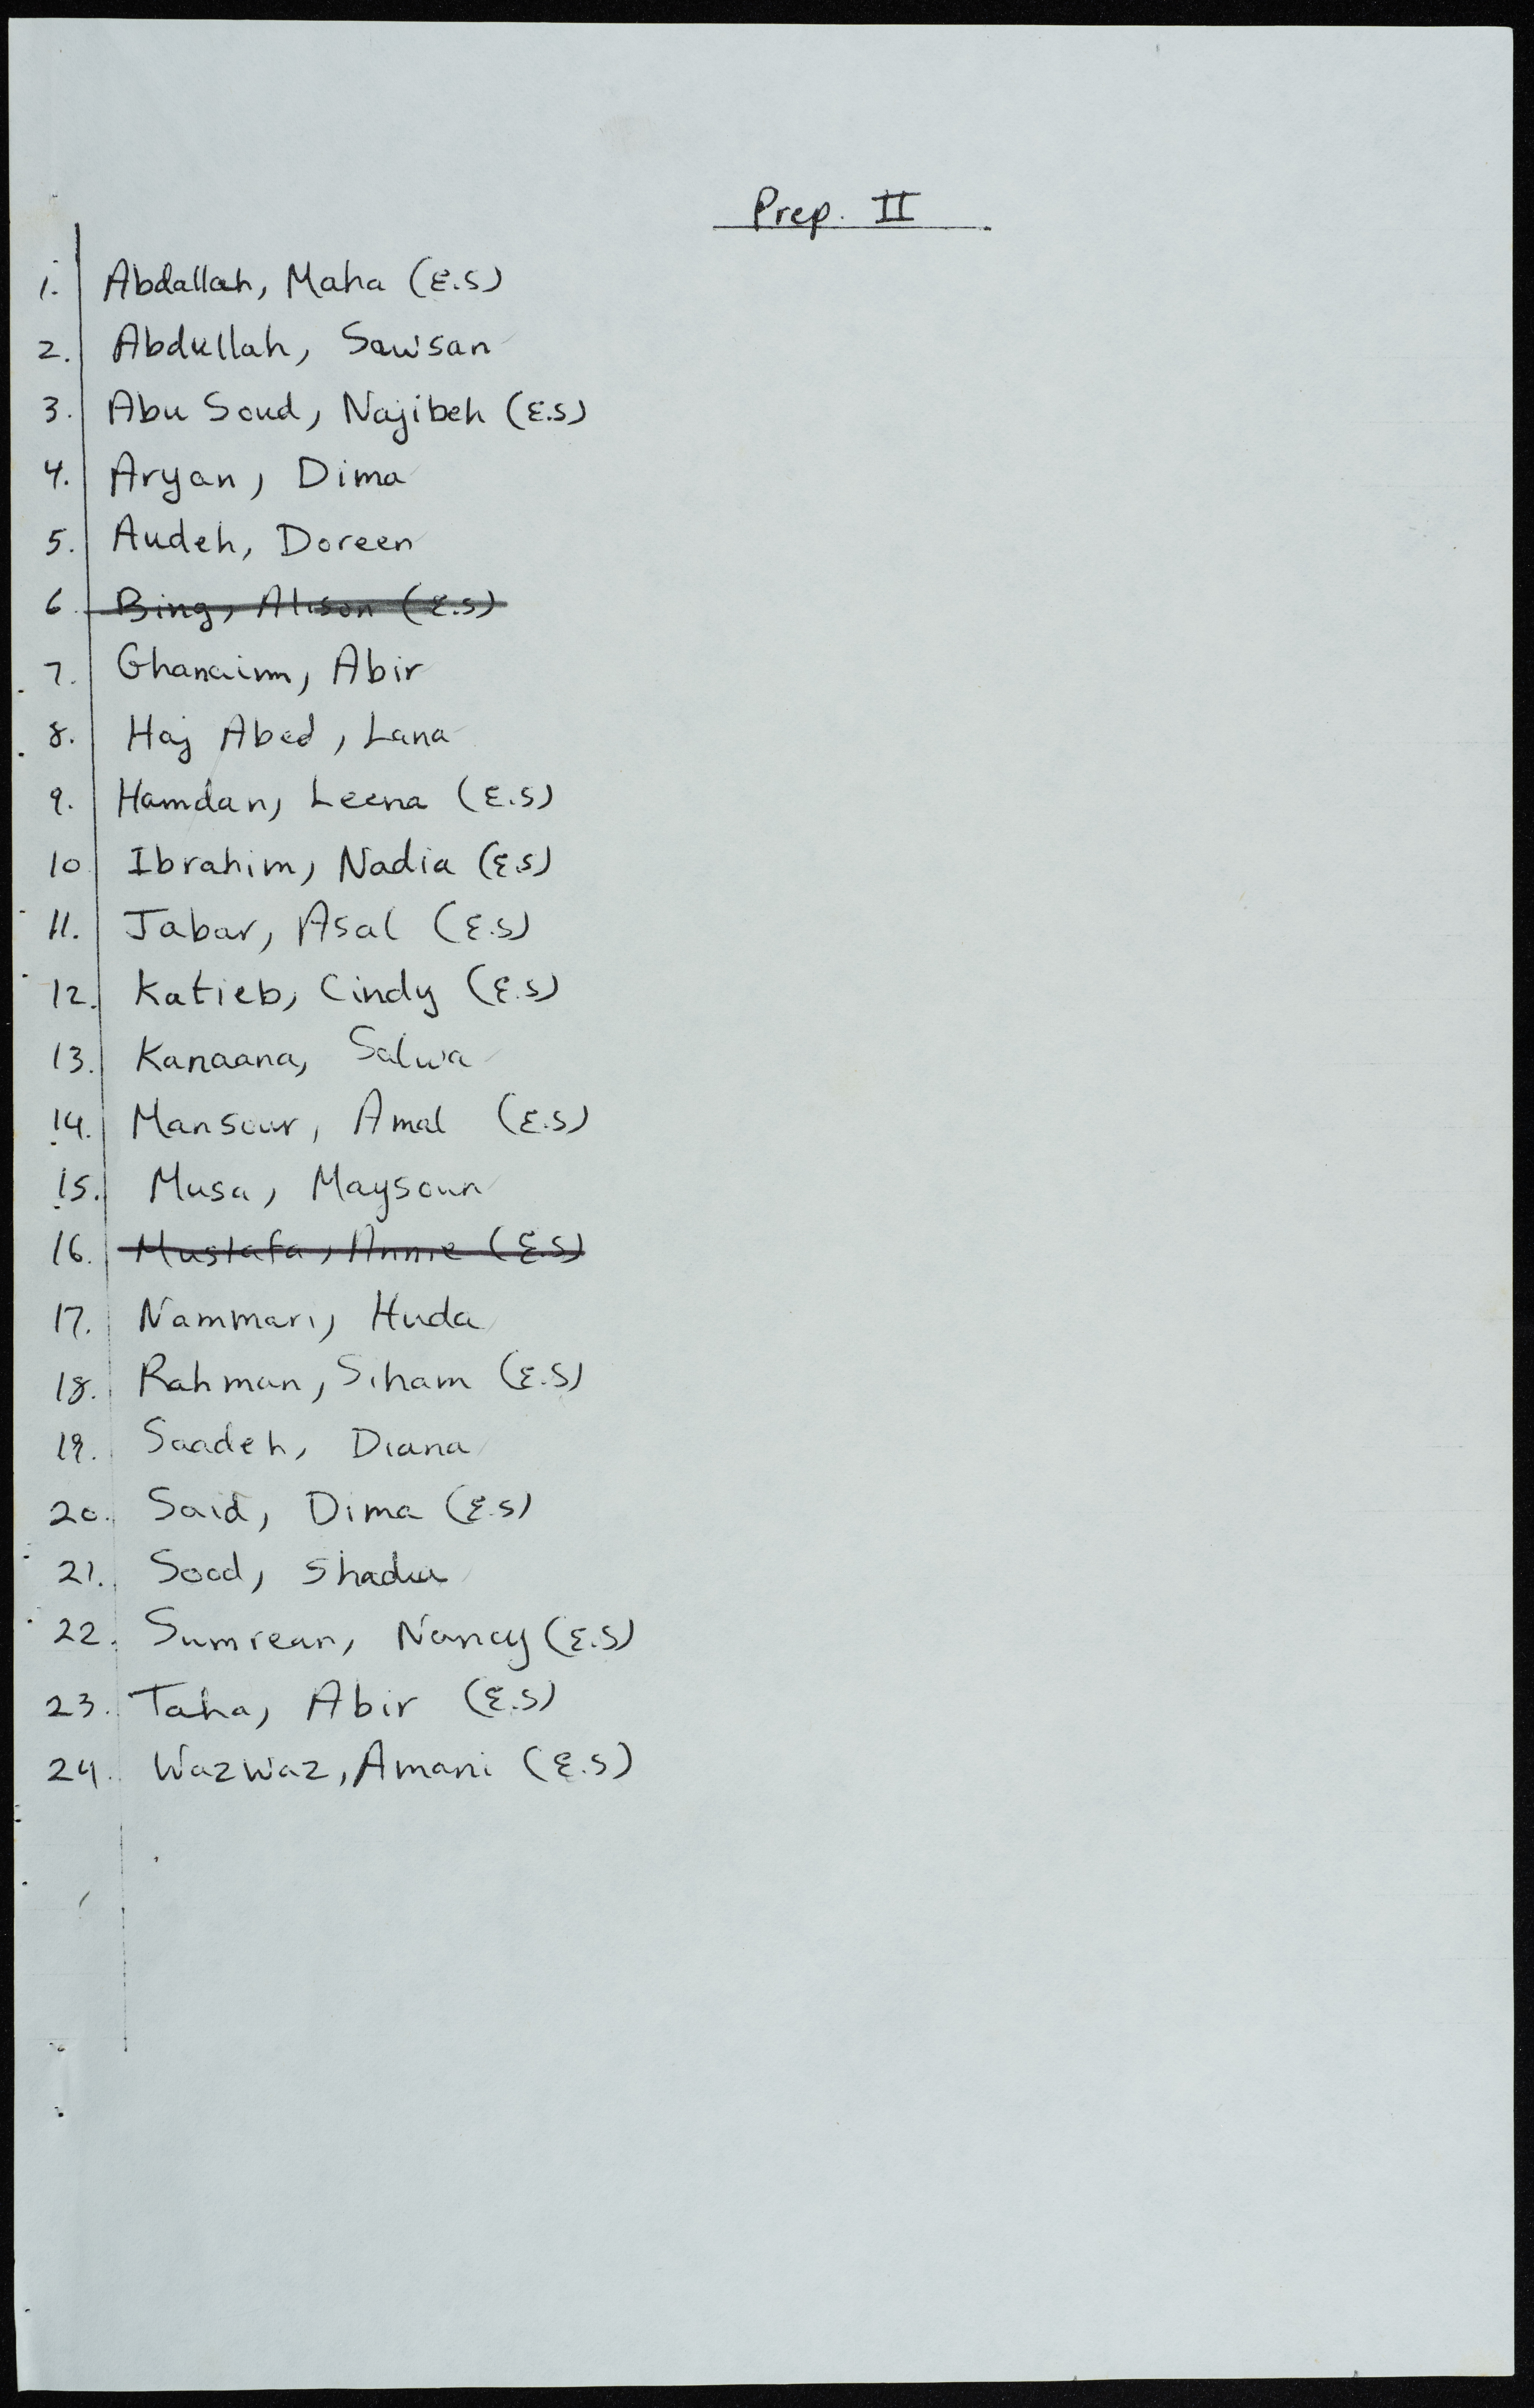 Prep. II
1. Abdallah, Maha (E.S)
2. Abdullah, Sawsan
3. Abu Soud, Najibeh (E.S)
4. Aryan, Dima
5. Audeh, Doreen
6. Bing, Alison (E.S)
7. Ghanaim, Abir
8. Haj Abed, Lana
9. Hamdan, Leena (E.S)
10 Ibrahim, Nadia (E.S)
11. Jabar, Asal (E.S)
12. Katieb, Cindy (E.S)
13. Kanaana, Salwa
14. Mansour, Amal (E.S)
15. Musa, Maysoun
16. Mustafa, Annie (E.S)
17. Nammari, Huda
18. Rahman, Siham (E.S)
19. Saadeh, Diana
20. Said, Dima (E.S)
21. Sood, Shadia
22. Sumrean, Nancy (E.S)
23. Taha, Abir (E.S)
24. Wazwaz, Amani (E.S)